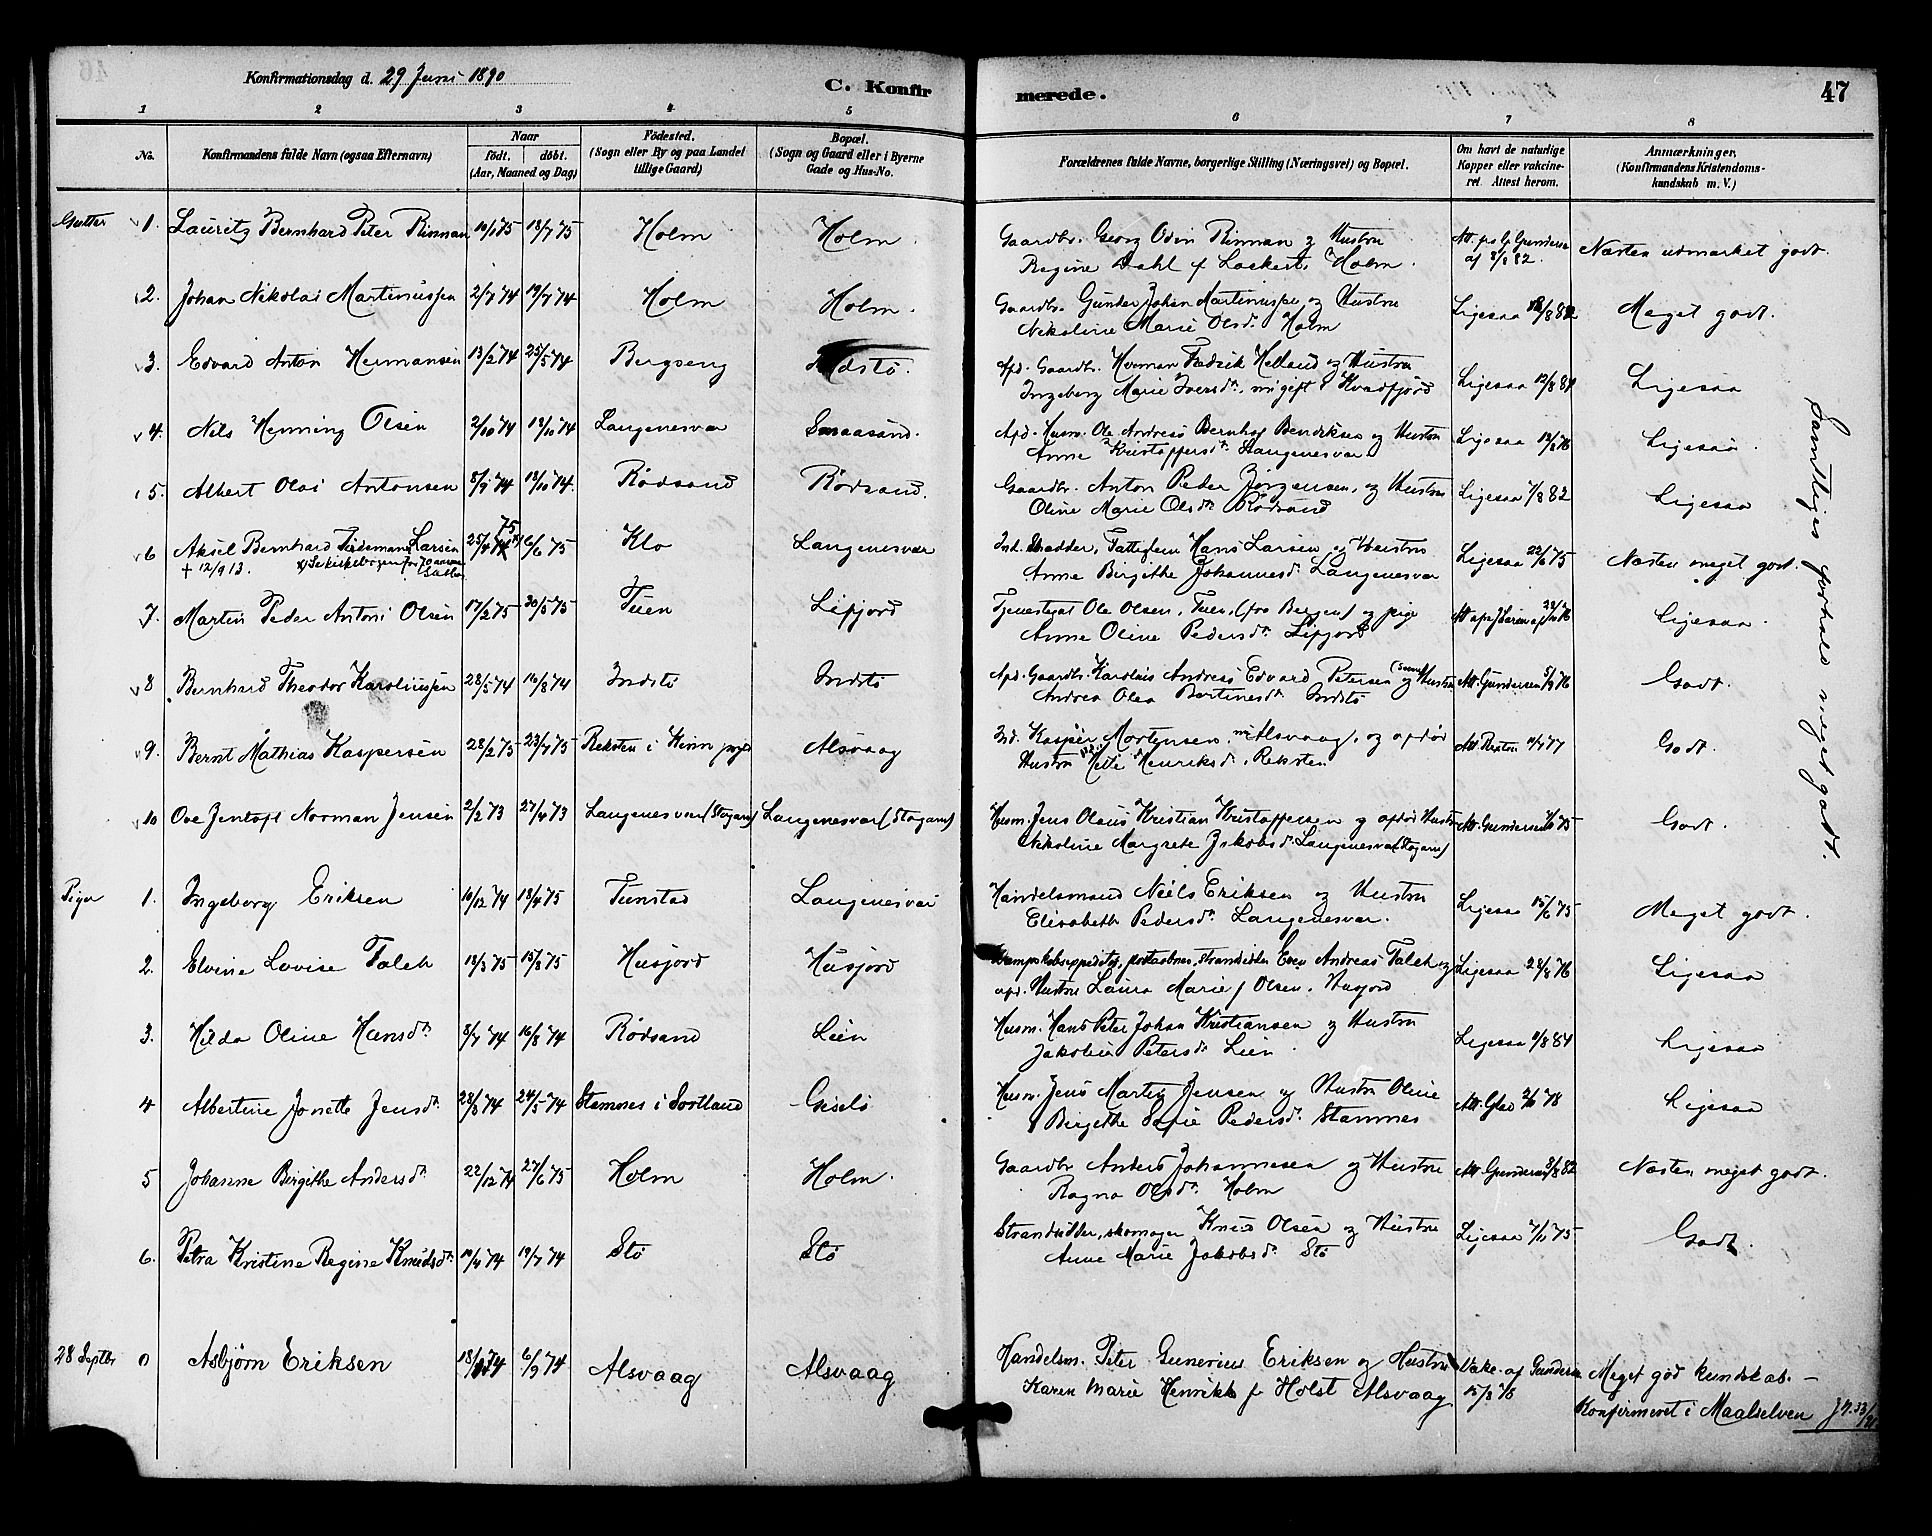 Konfirmationsdag d. 29 Juni 1890
C. Konfirmerede.
47
1 2 3 4 5 6 7 8
No.
Konfirmandens fulde Navn (ogsaa Efternavn)
Naar
födt. döbt.
(Aar, Maaned og Dag)
Födested.
(Sogn eller By og paa Landet
tillige Gaard)
Bopæl.
(Sogn og Gaard eller i Byerne
Gade og Hus-No.
Forældrenes fulde Navne, borgerlige Stilling (Næringsvei) og Bopæl.
Om havt de naturlige
Kopper eller vakcine-
ret. Attest herom.
Anmærkninger,
(Konfirmandens Kristendoms-
kundskab m. V.)
Gutter 1. Lauritz Bernhard Peter Rinman 10/1 75 18/7 75 Holm Holm.
Gaardbr. Georg Odin Rinman og Hustru
Regine Dahl f. Lockert, Holm.
Att. Gundersen
af 8/8 82.
Næsten udmærket godt.
2. Johan Nikolai Martinussen 2/7 74 19/7 74 Holm Holm.
Gaardbr. Gunder Johan Martinussen og Hustru
Nikoline Marie Olsd. Holm
Ligesaa
Meget godt.
3. Edvard Anton Hermansen 13/2 74 25/5 74 Bergseng
Afd. Gaardbr. Herman Fredrik Helland og Hustru
Ingeborg Marie Iversd., nu gift i Kvædfjord
Ligesaa
Ligesaa
4. Nils Henning Olsen 2/10 74 18/10 74 Langenesvær Smaasund.
Afd. Husm. Ole Andreas Bernhof Bendiksen og Hustru
Anne Kristoffersd. Langenesvær
Ligesaa 12/8 76
Ligesaa.
5. Albert Olai Antonsen 8/9 74 18/10 74. Rödsand Rödsand.
Gaardbr. Anton Peder Jörgensen, og Hustru
Oline Marie Olsd. Rödsand
Ligesaa 7/8 82
Ligesaa
6 Aksel Bernhard Tidemand Larsen 25/4 75 6/6 75 Klo Langenesvær
† 12/9 13.
Ind. Fattiglem Hans Larsen og Hustru
Anne Birgithe Johannesd. Langenesvær
Ligesaa 22/6 75
Næsten meget godt.
7. Martin Peder Antoni Olsen 17/2 75 30/5 75 Tuen Lifjord
Tjenestegut Ole Olsen, Tuen, (fra Bergen) og pige
Anne Oline Pedersd. Lifjord
Ligesaa.
8 Bernhard Theodor Karoliussen 28/5 74 16/8 74 Indstö Indstö
Afd. Gaardbr. Karolius Andreas Edvard Petersen og Hustru
Andrea Olea Bertinesd. Indstö
Att. Gundersen 5/9 76
Godt.
9. Bernt Mathias Kaspersen 28/2 75 23/7 75 Reksten i Kinn Alsvaag
Ind. Kasper Mortensen, Alsvaag, og afdöd
Hustru Mette Henriksd. Reksten
Godt.
10 Ove Jentoft Norman Jensen 2/2 73 27/4 73 Langenesvær (Stogarn) Langenesvær (Stogarn)
Husm. Jens Olaus Kristian Kristoffersen og afdöd Hustru
Nikoline Margrete Jakobsd. Langenesvær (Stogarn)
Att. Gundersen
Godt.
Piger 1. Ingeborg Eriksen 10/12 74 18/4 75 Tunstad Langenesvær
Handelsmand Niels Eriksen og Hustru
Elisabeth Pedersd. Langenesvær.
Ligesaa 15/6 75
Meget godt.
2. Elvine Lovise Falch 18/3 75 15/8 75 Husjord Husjord
Even Andreas Falch og
afd. Hustru Laura Marie f. Olsen. Husjord
Ligesaa
Ligesaa
3. Hilda Oline Hansd. 8/7 74 16/8 74 Rödsand Lien
Husm. Hans Peter Johan Kristiansen og Hustru
Jakobine Petersd. Lien.
Ligesaa 9/8 84
Ligesaa
4 Albertine Jonette Jensd. 28/3 74 24/5 74 Stamnes i Sortland Gislö
Husm. Jens Martin Jensen og Hustru Oline
Birgithe Sofie Pedersd. Stamnes
Ligesaa
5 Johanne Birgithe Andersd. 22/12 74 27/6 75 Holm Holm.
Gaardbr. Anders Johannesen og Hustru
Ragna Olsd. Holm
Att. Gundersen 8/8 82
Næsten meget godt.
6. Petra Kristine Regine Knudsd. 10/4 74 19/7 74 Stö Stö
Strandsidder, skomager Knud Olsen og Hustru
Anne Marie Jakobsd. Stö
Ligesaa 7/11 75
Godt.
Samtliges forhold meget godt.
28 Septbr 0 Asbjørn Eriksen 6/9 74 Alsvaag Alsvaag
Handelsm. Peter Gunerius Eriksen og Hustru
Karen Marie Henrikke f. Holst Alsvaag
Vakc. af Gundersen
Meget god kundskab. -
Konfirmeret i Maalselven